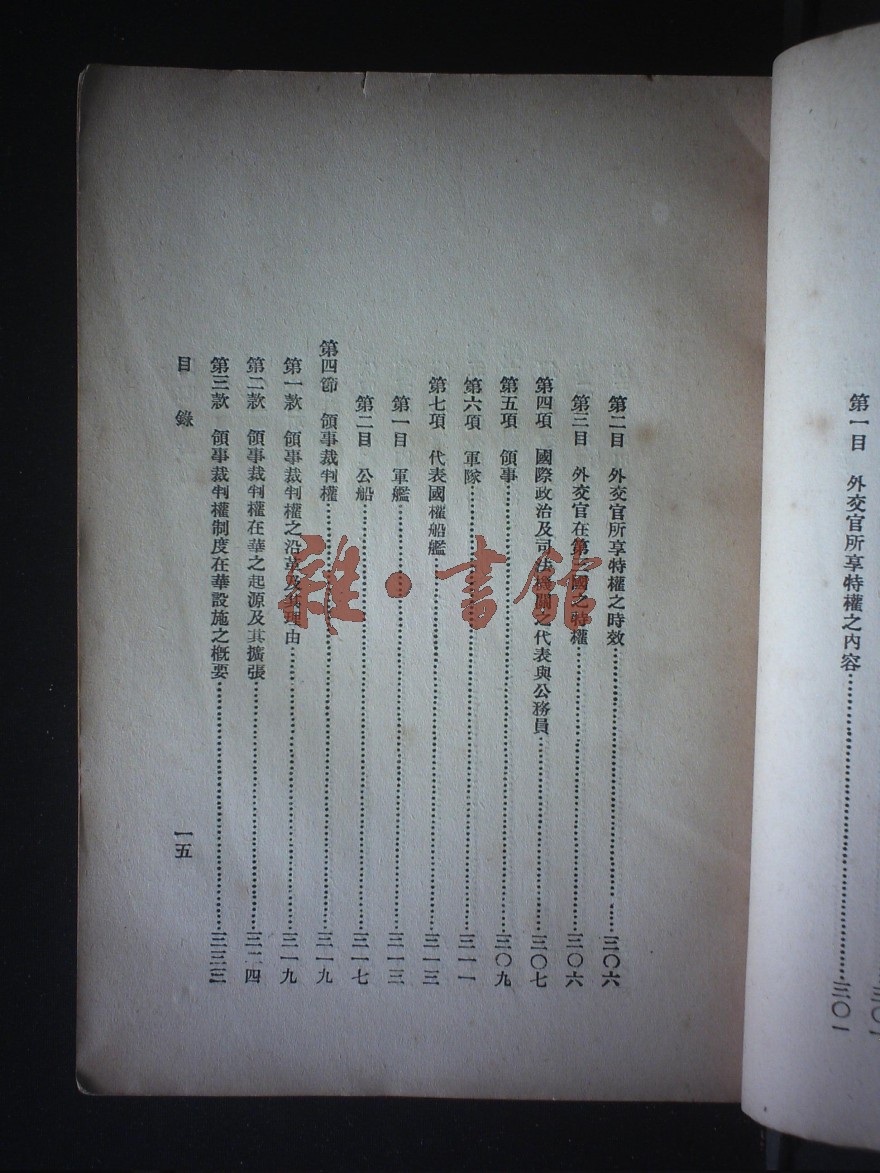 第一目　外交官所享特權之內容…………三〇一
第二目　外交官所享特權之時效…………三〇六
第三目　外交官在第三國之特權…………三〇六
第四項　國際政治及司法機關之代表與公務員…………三〇七
第五項　領事…………三〇九
第六項　軍隊…………三一一
第七項　代表國權船艦…………三一三
第一目　軍艦…………三一三
第二目　公船…………三一七
第四節　領事裁判權…………三一九
第一款　領事裁判權之沿革及其理由…………三一九
第二款　領事裁判權在華之起源及其擴張…………三二四
第三款　領事裁判權制度在華設施之概要…………三三三
目錄
一五
雜·書館